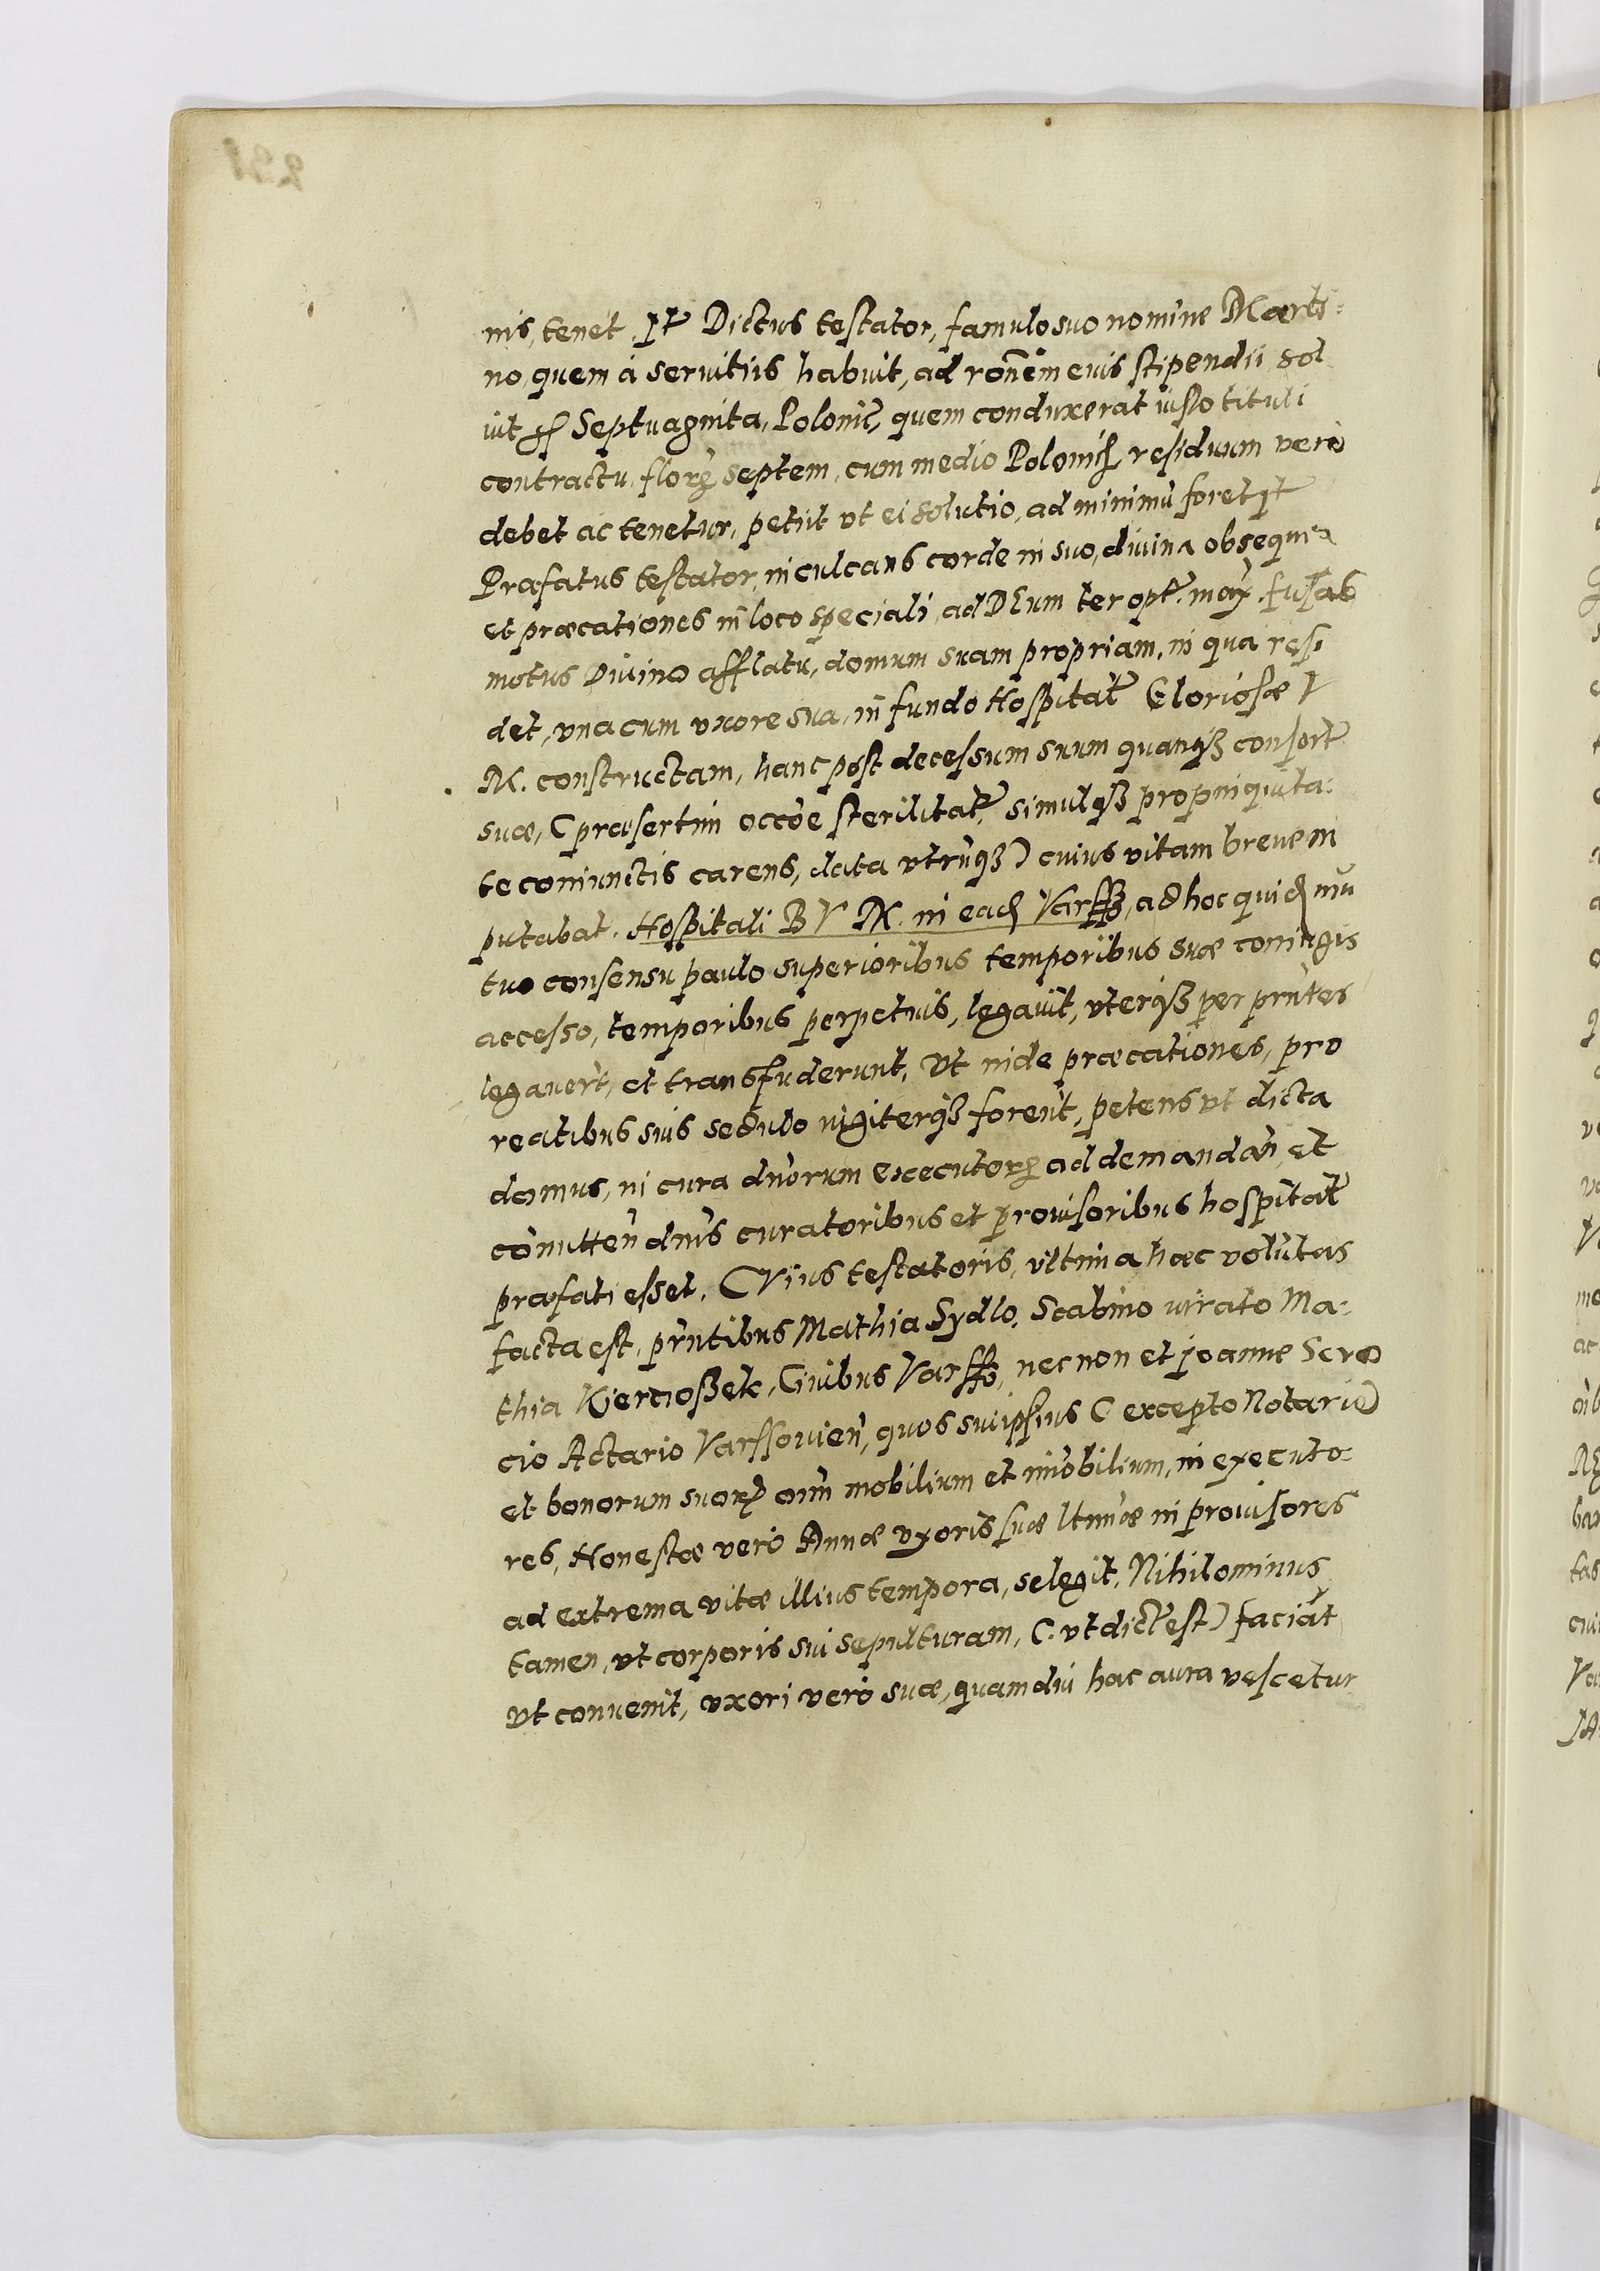 nis, tenet. It Dictus testator, famulo suo nomine Marti=
no, quem à servitiis habuit, ad ronem eius stipendii sol
uit Septuaginta, Polonic, quem conduxerat iusto tituli
contractu, flore septem, cum medio Polonic, residuum verò
debet ac tenetur, petiit vt ei solutio, ad minimu foret It
Præfatus testator, inculcans corde in suo, diuina obsequia
et præcationes in loco speciali, ad DEum ter opt. max fusas
motus Diuino afflatu, domum suam propriam, in qua resi
det, vna cum vxore sua, in fundo Hospital Gloriosæ V
M. constructam, hanc post decessum suum quamqз consort
suæ, (præsertim occoe sterilitat, simulqз propinquita=
te coniunctis carens, data vtrinqз) cuius vitam breuem
putabat. Hospitali B V M. in ead Varssз, ad hoc quid mu
tuo consensu paulo superioribus temporibus suæ coniugis
accesso, temporibus perpetuis, legauit, vterqз per prntes
legauert, et transfuderunt, Vt inde præcationes, pro
reatibus suis sedulo iugiterqз forent, petens vt dicta
domus, in cura dnorum executor ad demandan, et
comitten dnis curatoribus et prouisoribus hospital
præfati esset. CVius testatoris, vltima hæc volutas
facta est, prntibus Mathia Sydlo, Scabino iurato Ma=
thia Kierczoßek, Ciuibus Varssз, nec non et Joanne Scro
cio Actario Varssouien, quos sui ipsius (excepto Notario)
et bonorum suor oim mobilium et imobilium, in executo=
res, Honestæ verò Annæ vxoris suæ ltimæ in prouisores
ad extrema vitæ illius tempora, selegit. Nihilominus
tamen, vt corporis sui sepulturam, (vt dict est) faciat
vt conuenit, vxori verò suæ, quamdiu hac aura vescetur